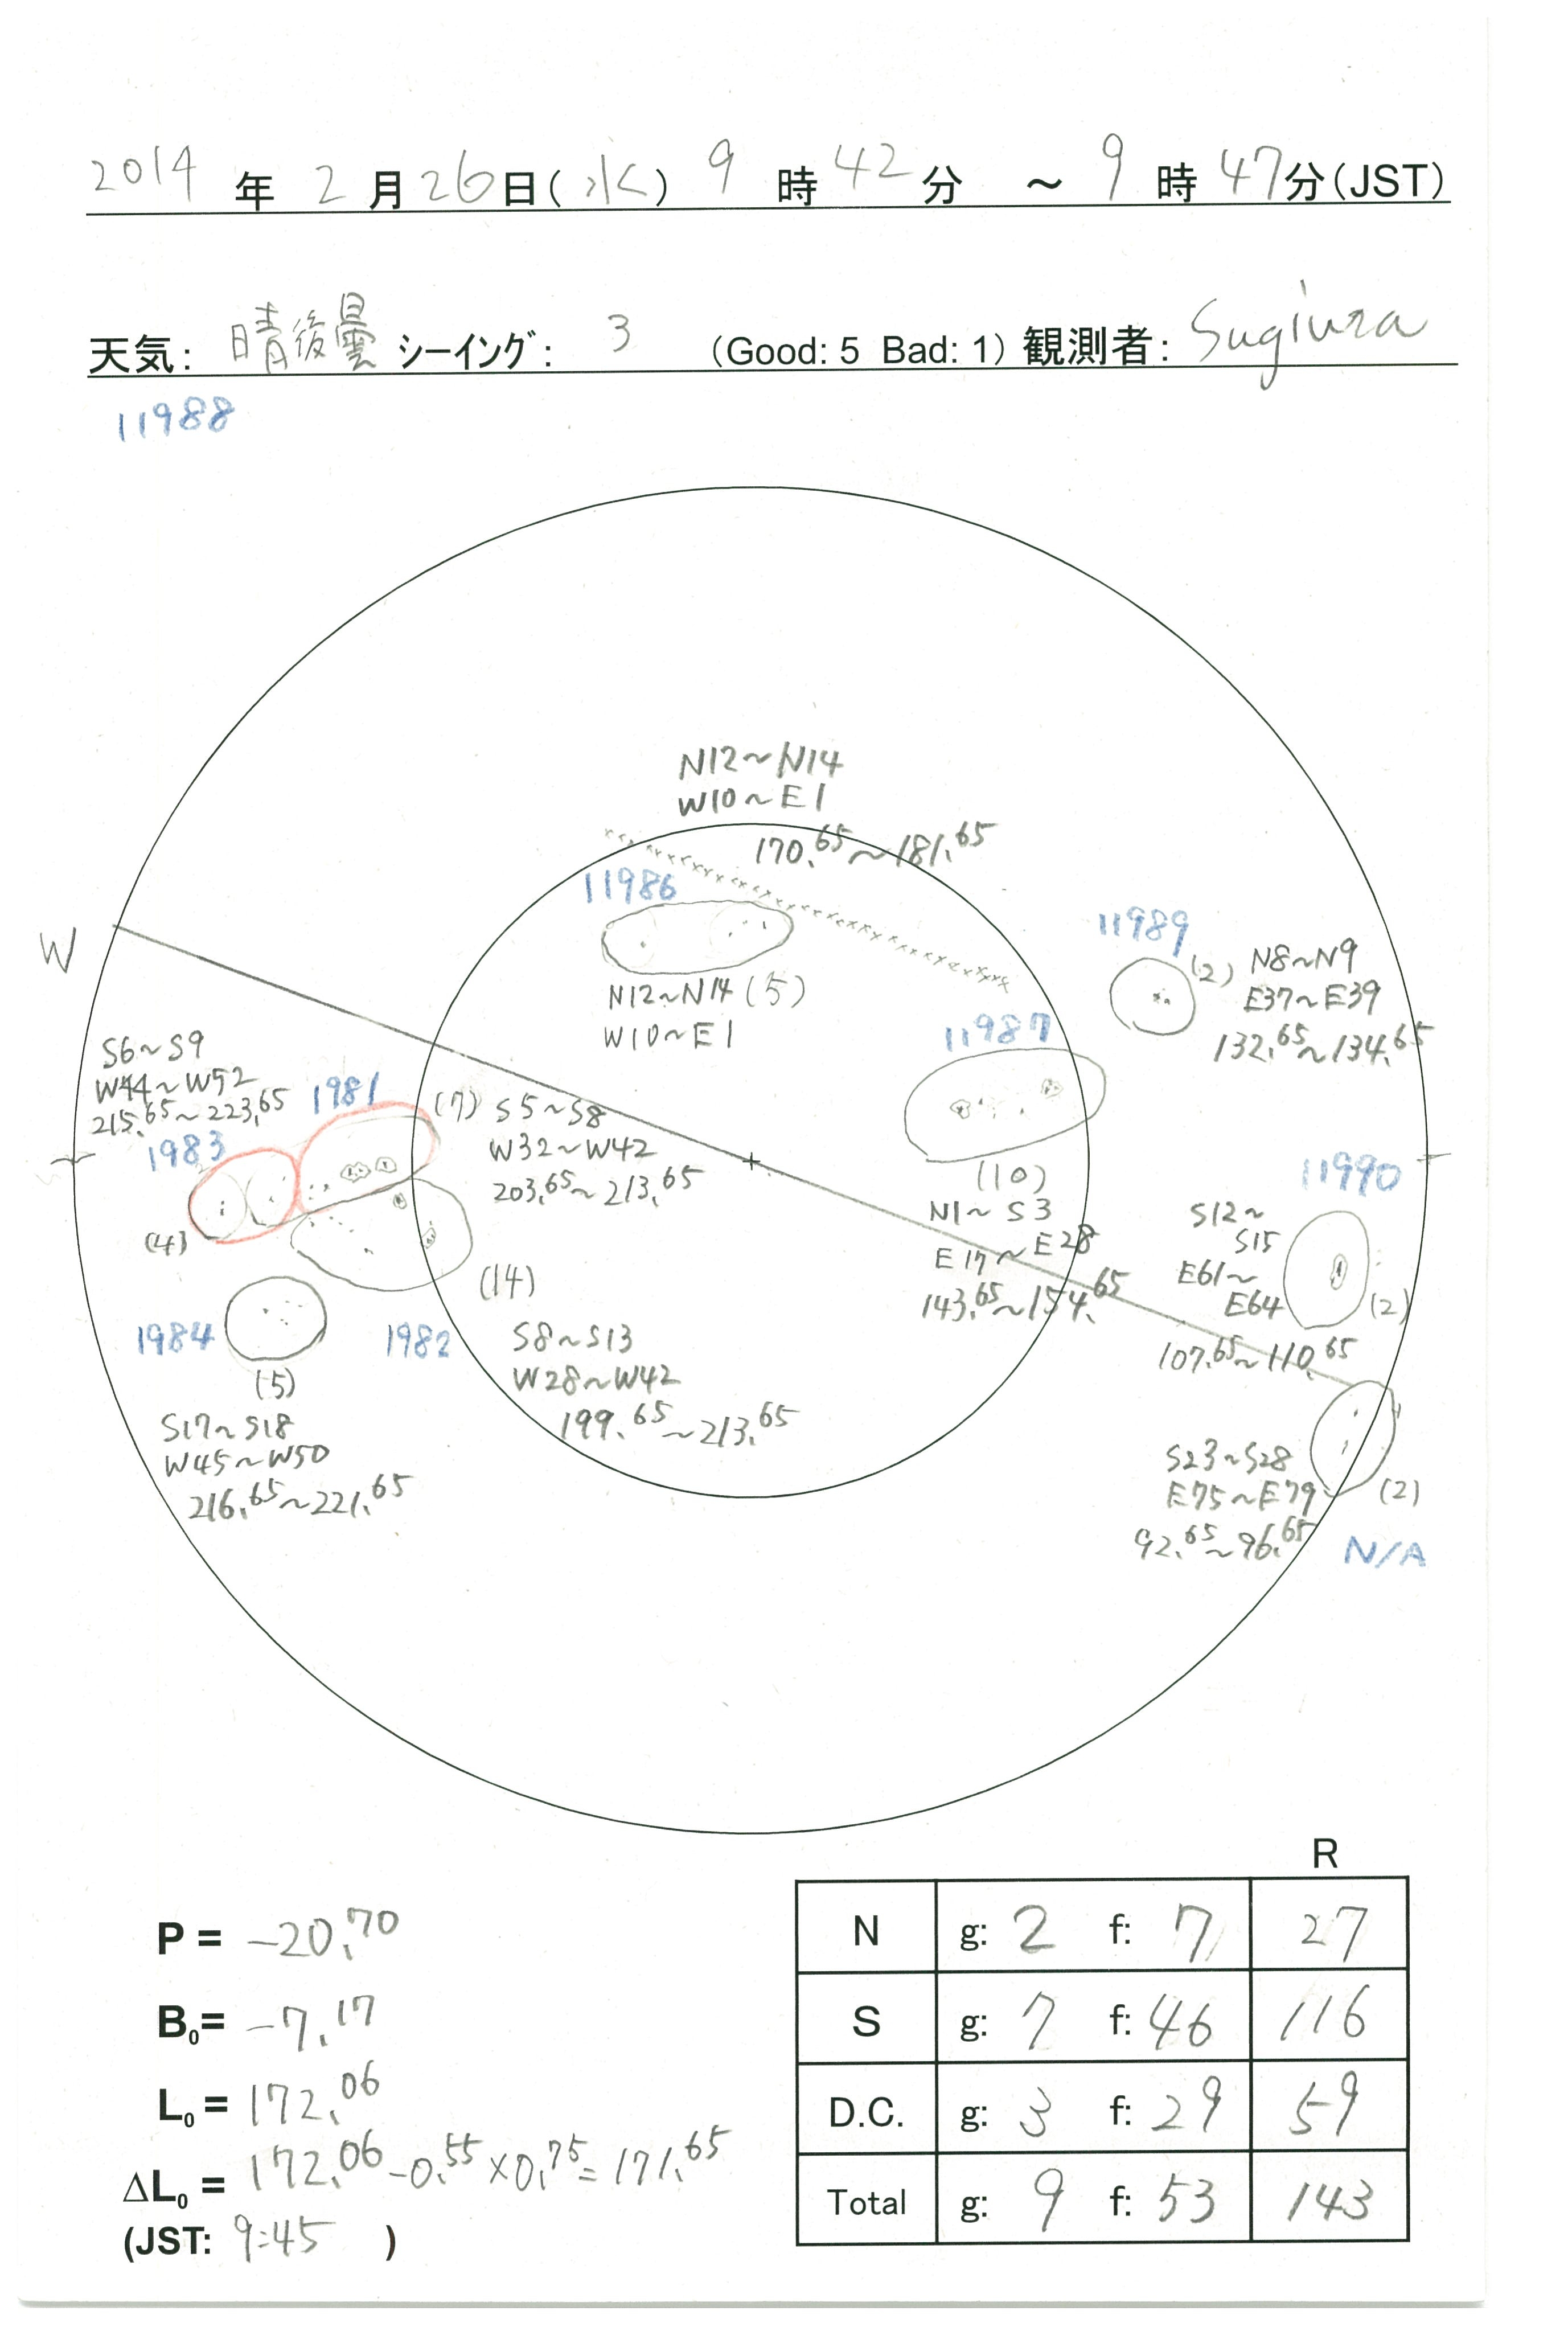 2014 年 2 月 26 日(水) 9 時 42 分 ~ 9 時 47 分(JST)
天気: 晴後曇 シーイング: 3 (Good: 5 Bad: 1) 観測者: Sugiura
11988
N12~N14
W10~E1
170.65~181.65
11986
N12~N14 (5)
W10~E1
11989
(2) N8~N9
E37~E39
132.65~134.65
W
11987
(10)
N1~S3
E17~E28
143.65~154.65
S6~S9
W44~W52
215.65~223.65
1983
(4)
1981
(7) S5~S8
W32~W42
203.65~213.65
11990
S12~
S15
E61~
E64
(2)
107.65~110.65
1984
(5)
S17~S18
W45~W50
216.65~221.65
1982
(14)
S8~S13
W28~W42
199.65~213.65
S23~S28
E75~E79
(2)
92.65~96.65
N/A
P = -20.70
B0= -7.17
L0 = 172.06
ΔL0 = 172.06-0.55×0.75=171.65
(JST: 9:45 )
R
N g: 2 f: 7 27
S g: 7 f: 46 116
D.C. g: 3 f: 29 59
Total g: 9 f: 53 143